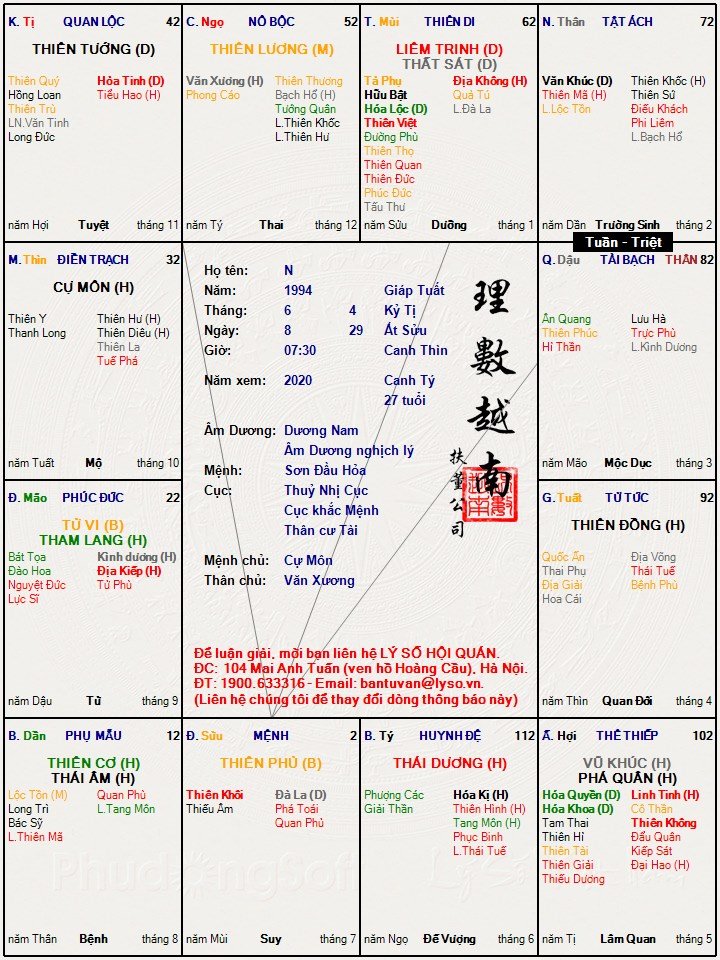 K. Tị QUAN LỘC 42
THIÊN TƯỚNG (D)
Thiên Quý
Hồng Loan
Thiên Trù
LN.Văn Tinh
Long Đức
Hỏa Tinh (D)
Tiểu Hao (H)
năm Hợi Tuyệt tháng 11
C. Ngọ NÔ BỘC 52
THIÊN LƯƠNG (M)
Văn Xương (H)
Phong Cáo
Thiên Thương
Bạch Hổ (H)
Tướng Quân
L.Thiên Khốc
L.Thiên Hư
năm Tý Thai tháng 12
T. Mùi THIÊN DI 62
LIÊM TRINH (D)
THẤT SÁT (D)
Tả Phụ
Hữu Bật
Hóa Lộc (D)
Thiên Việt
Đường Phù
Thiên Thọ
Thiên Quan
Thiên Đức
Phúc Đức
Tấu Thư
Địa Không (H)
Quả Tú
L.Đà La
năm Sửu Dưỡng tháng 1
N. Thân TẬT ÁCH 72
Văn Khúc (D)
Thiên Mã (H)
L.Lộc Tồn
Thiên Khốc (H)
Thiên Sứ
Điếu Khách
Phi Liêm
L.Bạch Hổ
năm Dần Trường Sinh tháng 2
Tuần - Triệt
M. Thìn ĐIỀN TRẠCH 32
CỰ MÔN (H)
Thiên Y
Thanh Long
Thiên Hư (H)
Thiên Diêu (H)
Thiên La
Tuế Phá
năm Tuất Mộ tháng 10
Họ tên: N
Năm: 1994 Giáp Tuất
Tháng: 6 4 Kỷ Tị
Ngày: 8 29 Ất Sửu
Giờ: 07:30 Canh Thìn
Năm xem: 2020 Canh Tý
27 tuổi
Âm Dương: Dương Nam
Âm Dương nghịch lý
Mệnh: Sơn Đầu Hỏa
Cục: Thuỷ Nhị Cục
Cục khắc Mệnh
Thân cư Tài
Mệnh chủ: Cự Môn
Thân chủ: Văn Xương
理數越南
扶董公司
Để luận giải, mời bạn liên hệ LÝ SỐ HỘI QUÁN.
ĐC: 104 Mai Anh Tuấn (ven hồ Hoàng Cầu), Hà Nội.
ĐT: 1900.633316 - Email: bantuvan@lyso.vn.
(Liên hệ chúng tôi để thay đổi dòng thông báo này)
Q. Dậu TÀI BẠCH THÂN 82
Ân Quang
Thiên Phúc
Hỉ Thần
Lưu Hà
Trực Phù
L.Kình Dương
năm Mão Mộc Dục tháng 3
Đ. Mão PHÚC ĐỨC 22
TỬ VI (B)
THAM LANG (H)
Bát Tọa
Đào Hoa
Nguyệt Đức
Lực Sĩ
Kình dương (H)
Địa Kiếp (H)
Tử Phù
năm Dậu Tử tháng 9
G. Tuất TỬ TỨC 92
THIÊN ĐỒNG (H)
Quốc Ấn
Thai Phụ
Địa Giải
Hoa Cái
Địa Võng
Thái Tuế
Bệnh Phù
năm Thìn Quan Đới tháng 4
B. Dần PHỤ MẪU 12
THIÊN CƠ (H)
THÁI ÂM (H)
Lộc Tồn (M)
Long Trì
Bác Sỹ
L.Thiên Mã
Quan Phù
L.Tang Môn
năm Thân Bệnh tháng 8
Đ. Sửu MỆNH 2
THIÊN PHỦ (B)
Thiên Khôi
Thiếu Âm
Đà La (D)
Phá Toái
Quan Phủ
năm Mùi Suy tháng 7
B. Tý HUYNH ĐỆ 112
THÁI DƯƠNG (H)
Phượng Các
Giải Thần
Hóa Kị (H)
Thiên Hình (H)
Tang Môn (H)
Phục Binh
L.Thái Tuế
năm Ngọ Đế Vượng tháng 6
Ấ. Hợi THÊ THIẾP 102
VŨ KHÚC (H)
PHÁ QUÂN (H)
Hóa Quyền (D)
Hóa Khoa (D)
Tam Thai
Thiên Hỉ
Thiên Tài
Thiên Giải
Thiếu Dương
Linh Tinh (H)
Cô Thần
Thiên Không
Đẩu Quân
Kiếp Sát
Đại Hao (H)
năm Tị Lâm Quan tháng 5